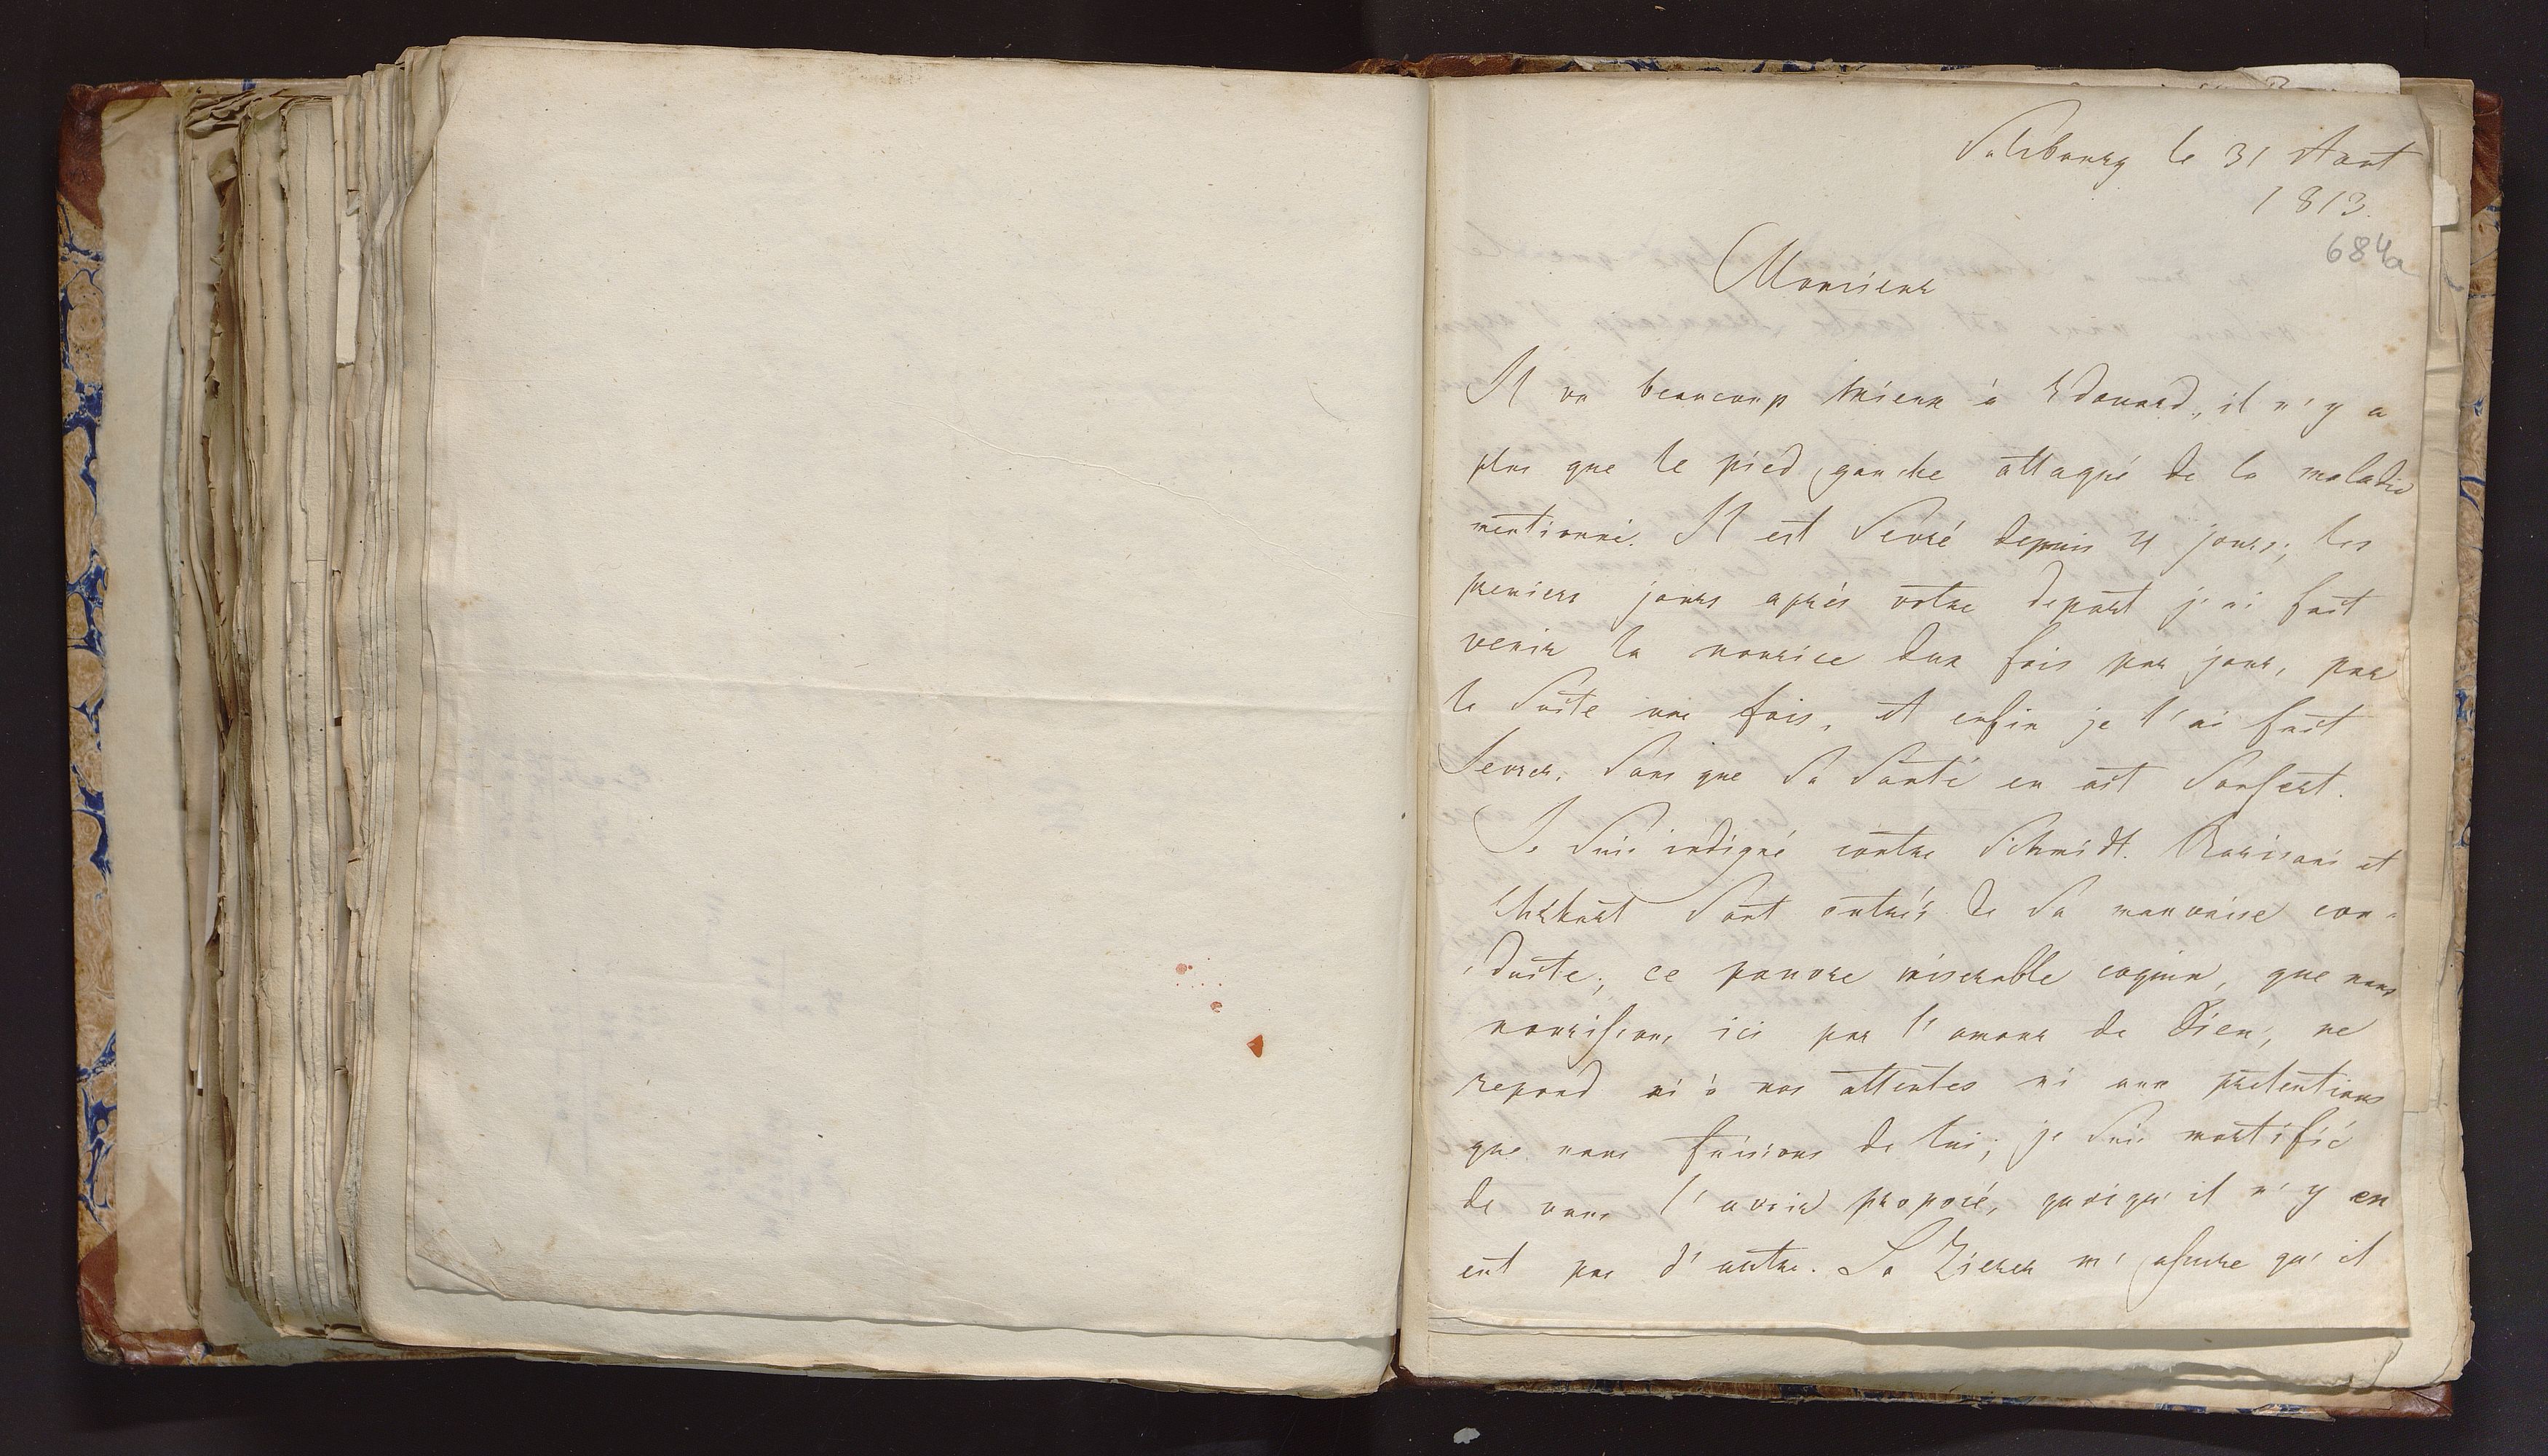 Salzbourg le 31 Aout
1813.
684a
Monsieur
Il va beaucoup mieux à Edouard, il n'y a
plus que le pied gauche attaqué de la maladie
mentionné. Il est Sevré depuis 4 jours; les
premiers jours après votre depart j'ai fait
venir la nourice deux fois par jour, par
la Suite une fois, et enfin je l'ai fait
Sevrer, Sans que Sa Santé en ait Souffert.
Je Suis indigné contre Schmidt. Barisani et
Sont outrés de Sa mauvaise con-
duite; ce pauvre miserable coquin, que nous
nourissons ici par l'amour de Dieu, ne
repond ni à nos attentes ni aux pretentions
que nous faisions de lui; je Suis mortifié
de vous l'avoir proposé, quoiqu'il n'y en
eut pas d'autre. La Zierer m'assure qu'il